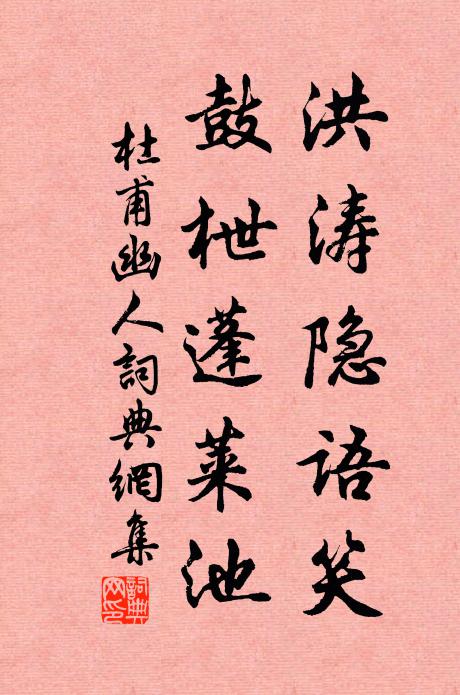 洪涛隐语笑
鼓枻蓬莱池
杜甫幽人詞典網集
詞典网印